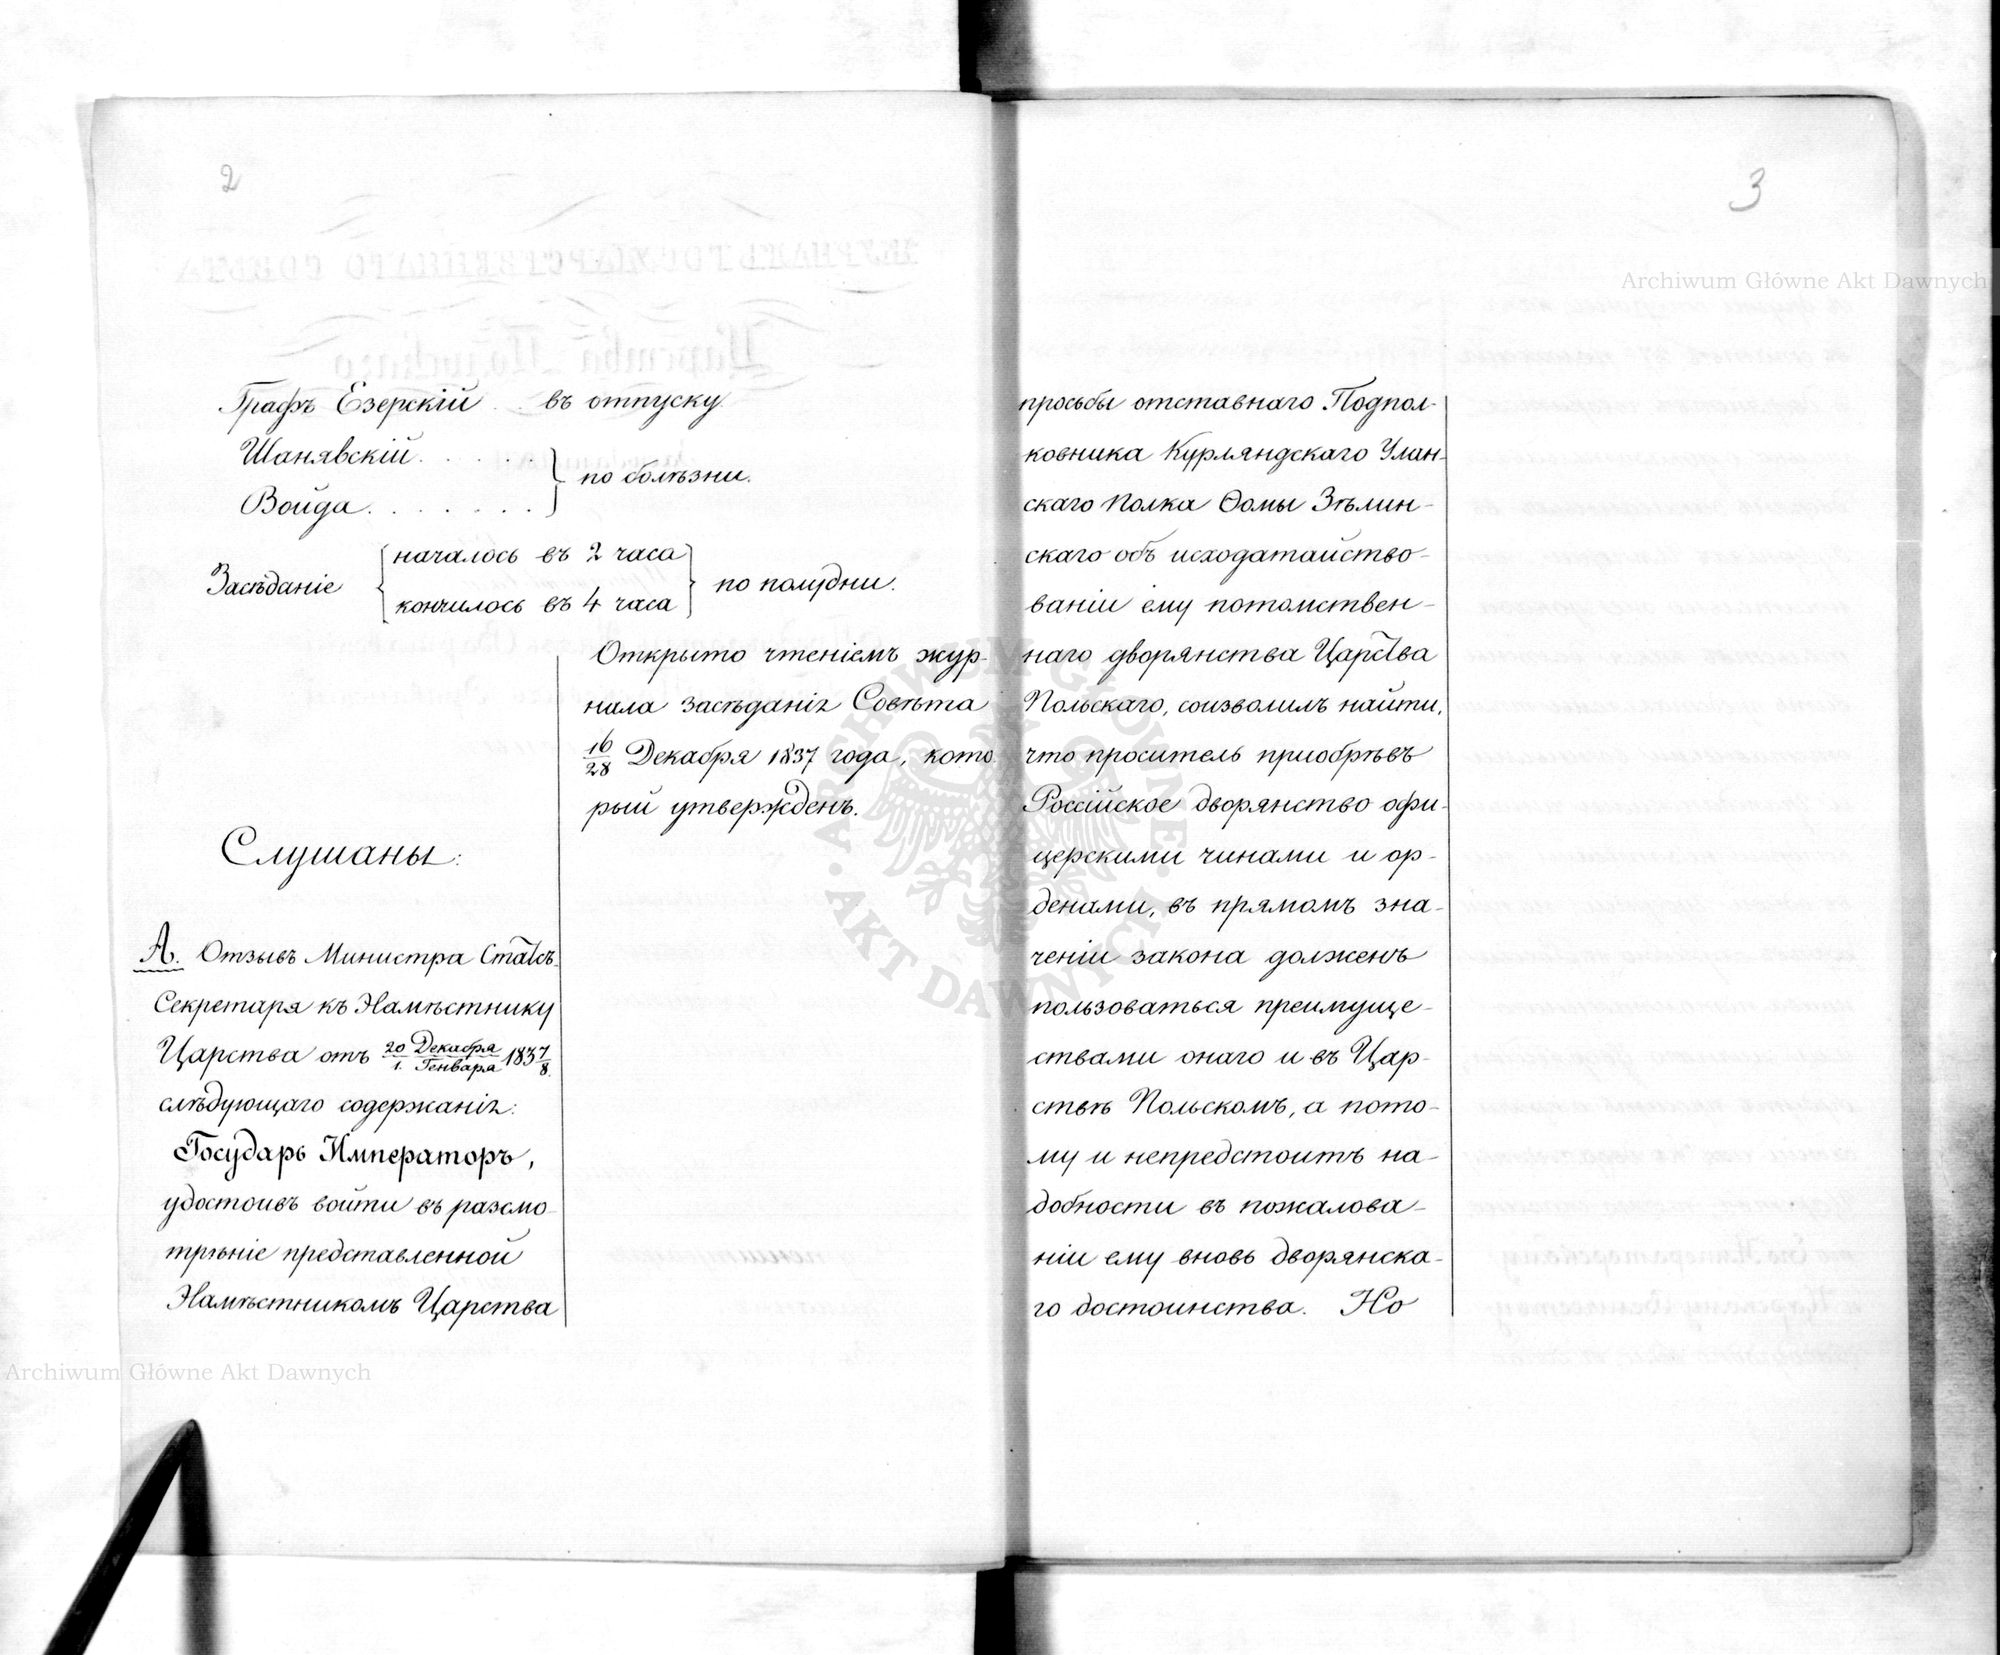 2
Графъ Езерскій . . въ отпуску.
Шанявскій . . . . .
Войда . . . . . . .
по болѣзни.
Засѣданіе
началось въ 2 часа
кончилось въ 4 часа
по полудни.
Открыто чтеніемъ жур-
нала засѣданія Совѣта
16/28 Декабря 1837 года, кото-
рый утвержденъ.
Слушаны:
А. Отзывъ Министра Статсъ-
Секретаря къ Намѣстнику
Царства отъ 20 Декабря/1. Генваря 1837/8.
слѣдующаго содержанія:
Государь Императоръ,
удостоивъ войти въ разсмо-
трѣніе представленной
Намѣстникомъ Царства
3
просьбы отставнаго Подпол-
ковника Курляндскаго Улан-
скаго Полка Ѳомы Зѣлин-
скаго объ исходатайство-
ваніи ему потомствен-
наго дворянства Царства
Польскаго, соизволилъ найти,
что проситель пріобрѣвъ
Россійское дворянство офи-
церскими чинами и ор-
денами, въ прямомъ зна-
ченіи закона долженъ
пользоваться преимуще-
ствами онаго и въ Цар-
ствѣ Польскомъ, а пото-
му и непредстоитъ на-
добности въ пожалова-
ніи ему вновь дворянска-
го достоинства. Но
Archiwum Główne Akt Dawnych
Archiwum Główne Akt Dawnych
ARCHIWUM GŁÓWNE · AKT DAWNYCH ·